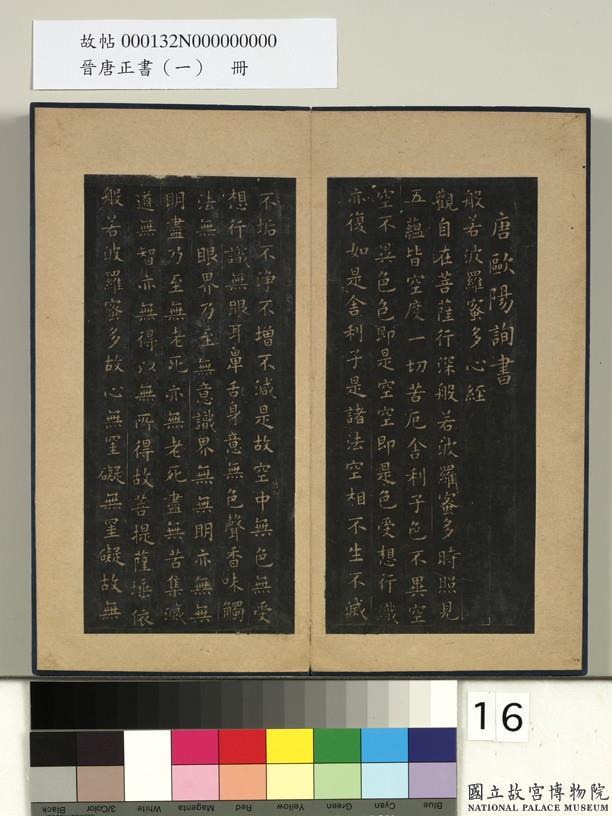 故帖 000132N000000000
晉唐正書（一） 冊
唐歐陽詢書
般若波羅蜜多心經
觀自在菩薩行深般若波羅蜜多時照見
五蘊皆空度一切苦厄舍利子色不異空
空不異色色即是空空即是色受想行識
亦復如是舍利子是諸法空相不生不滅
不垢不淨不增不減是故空中無色無受
想行識無眼耳鼻舌身意無色聲香味觸
法無眼界乃至無意識界無無明亦無無
明盡乃至無老死亦無老死盡無苦集滅
道無智亦無得以無所得故菩提薩埵依
般若波羅蜜多故心無罣礙無罣礙故無
16
Blue
Cyan
Green
Yellow
Red
Magenta
White
3/Color
Black
國立故宮博物院
NATIONAL PALACE MUSEUM